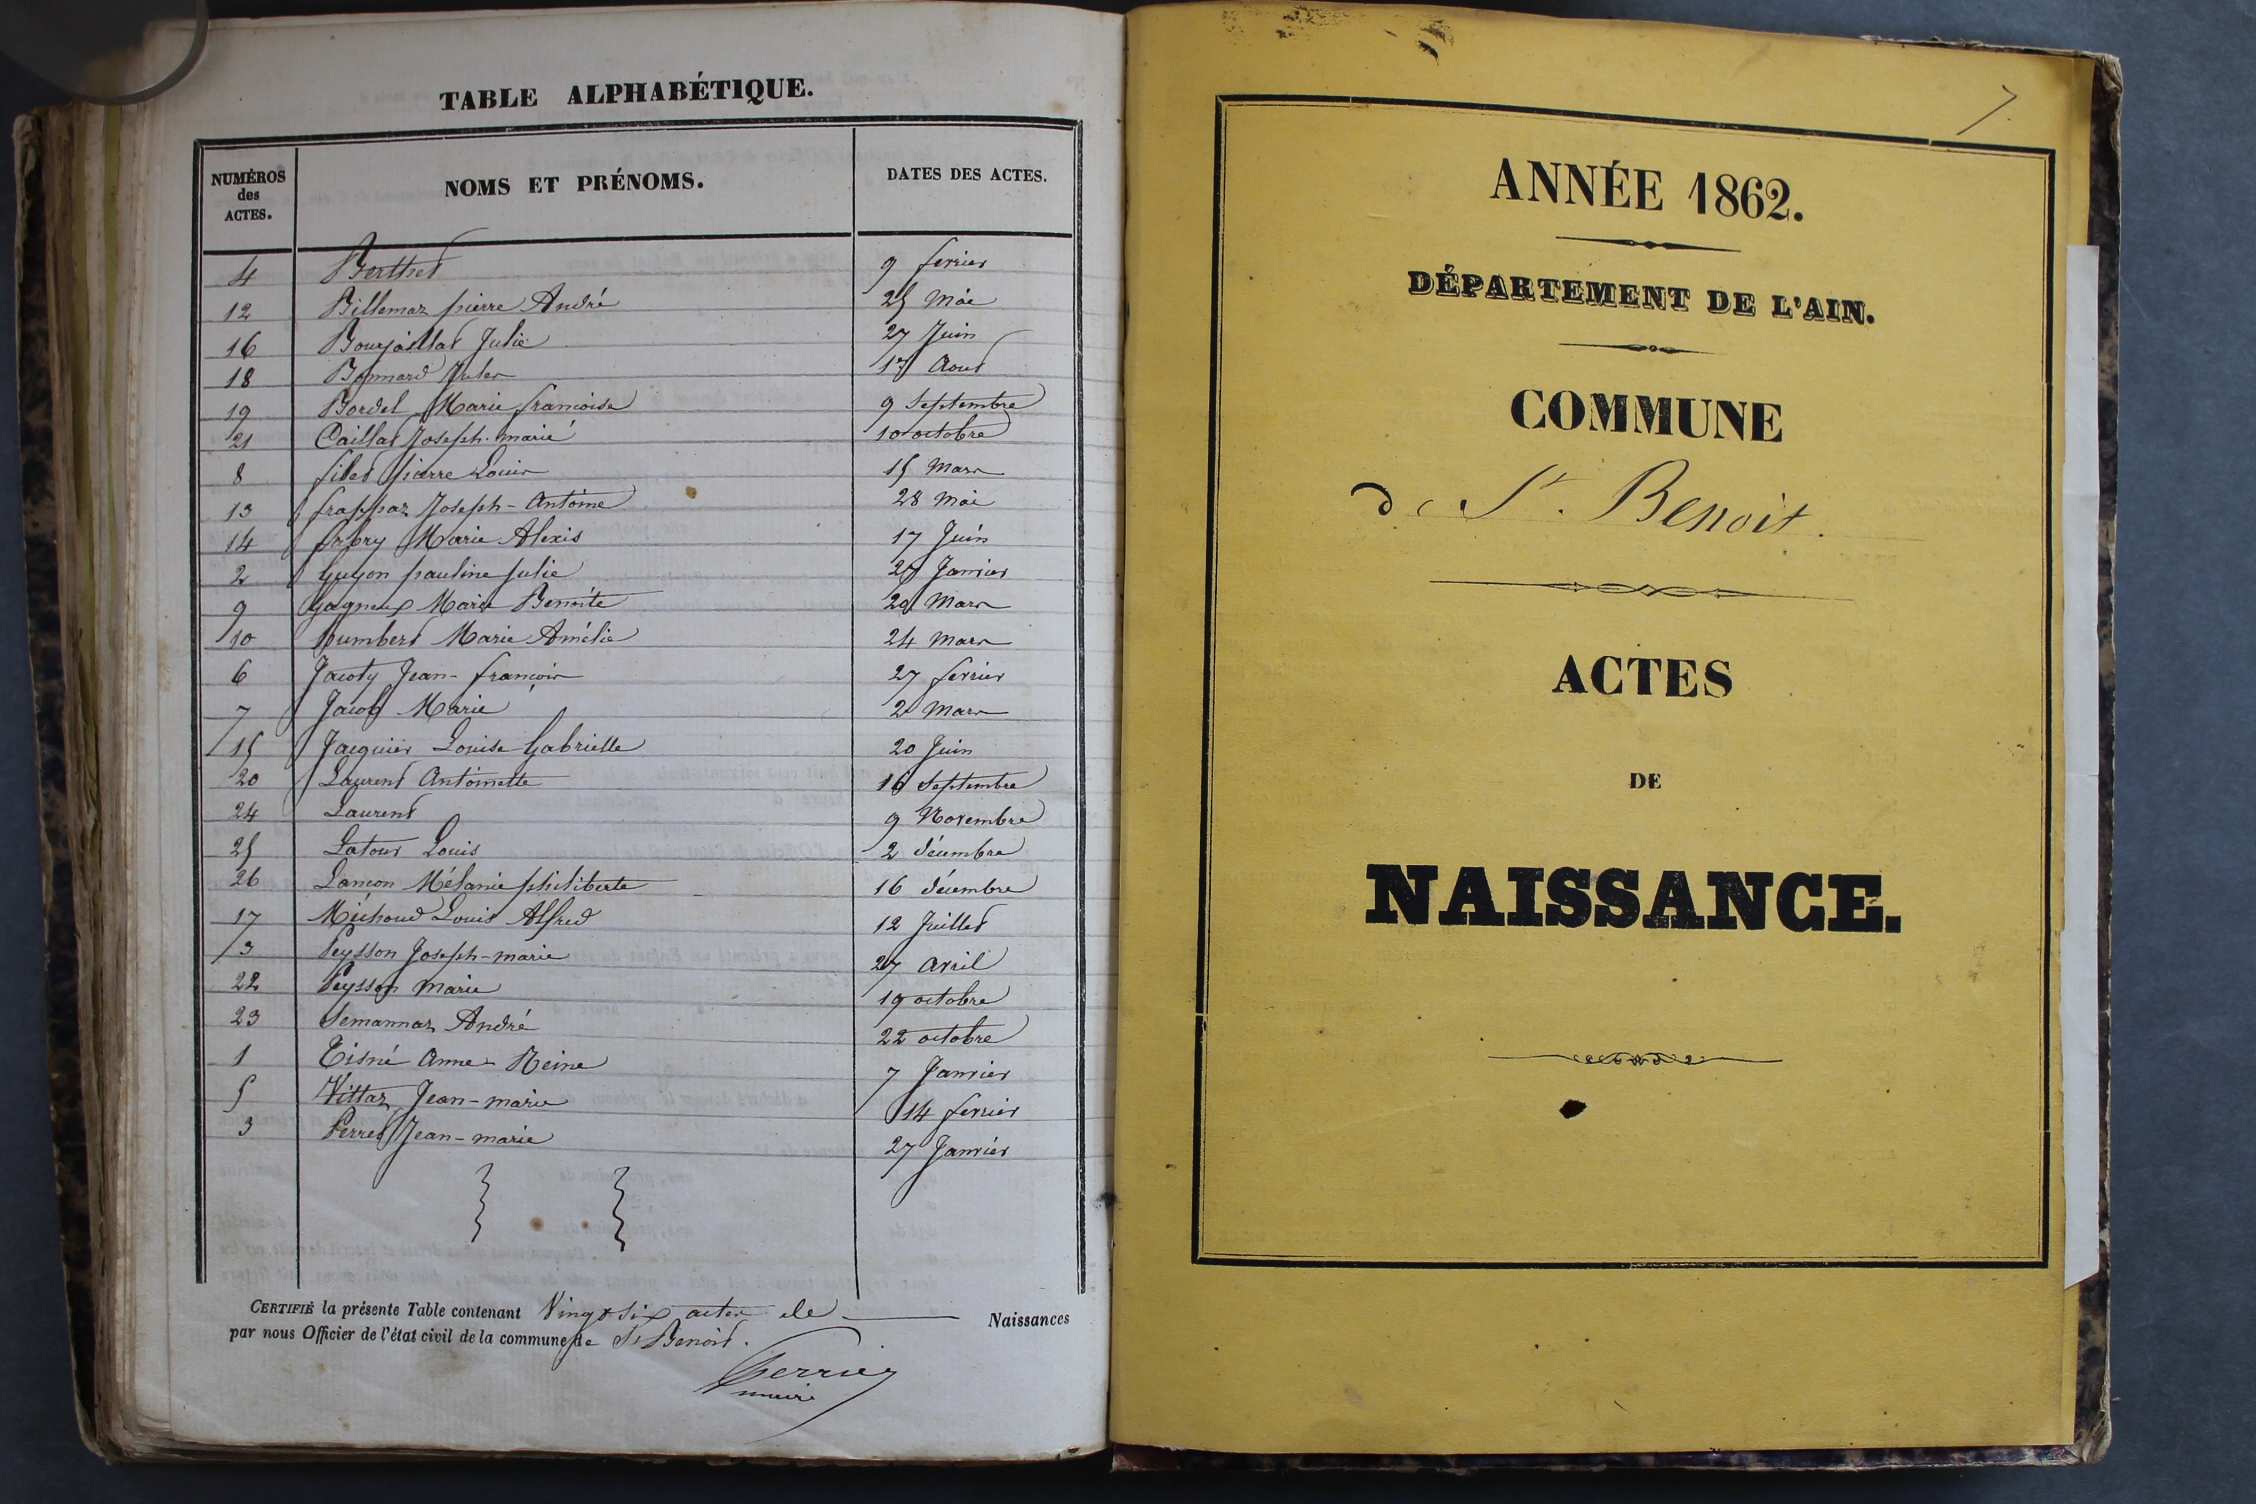 TABLE ALPHABÉTIQUE.
NUMÉROS des ACTES. NOMS ET PRÉNOMS. DATES DES ACTES.
4 Berthet 9 fevrier
12 Billemaz pierre André 25 Mai
16 Bourjaillat Julie 27 Juin
18 Bonnard Jules 17 Aout
19 Bordel Marie francoise 9 Septembre
21 Caillat Joseph-marie 10 octobre
8 filet pierre Louis 15 Mars
13 frappaz Joseph-Antoine 28 Mai
14 Marie Alexis 17 Juin
2 Guyon pauline julie Janvier
9 Gagneux Marie Benoite 20 Mars
10 humbert Marie Amélie 24 mars
6 Jacoty Jean-françois 27 fevrier
7 Jacob Marie 2 Mars
15 Jacquier Louise Gabrielle 20 Juin
20 Laurent Antoinette 16 Septembre
24 Laurent 9 Novembre
25 Latour Louis 2 décembre
26 Lançon Mélanie philiberte 16 décembre
17 Michoud Louis Alfred 12 Juillet
3 Peysson Joseph-marie 27 avril
22 Peysson marie 19 octobre
23 Semannaz André 22 octobre
1 Tisné Anne-Reine 7 Janvier
5 Vittaz Jean-marie 14 fevrier
3 Perret Jean-marie 27 Janvier
CERTIFIÉ la présente Table contenant Vingt six actes de Naissances
par nous Officier de l'état civil de la commune de St Benoit.
Perrier
maire
7.
ANNÉE 1862.
DÉPARTEMENT DE L'AIN.
COMMUNE
de St. Benoit.
ACTES
DE
NAISSANCE.